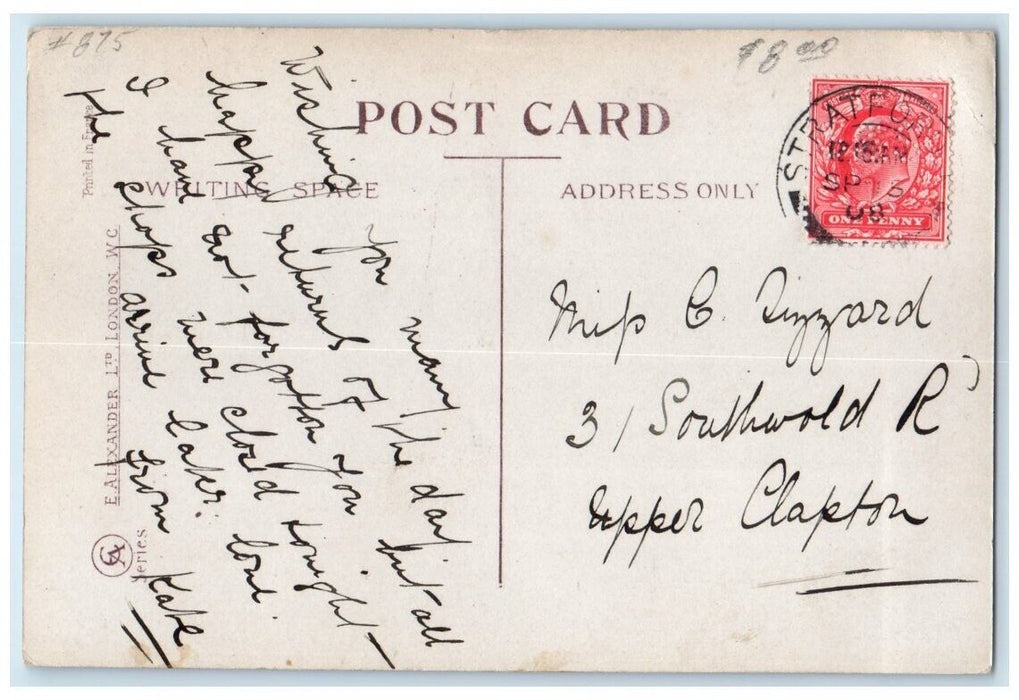 #875
$8.00
POST CARD
WRITING SPACE
ADDRESS ONLY
Wishing you many
happy returns of the day
I have not forgotten you but all
The shops were closd tonight -
arrive later. love
from Kate
Miss C. Tizzard
31 Southwold Rd
Upper Clapton
STRATFO
SP 3
08
ONE PENNY
Printed in
E. ALEXANDER LTD LONDON. W C
Series